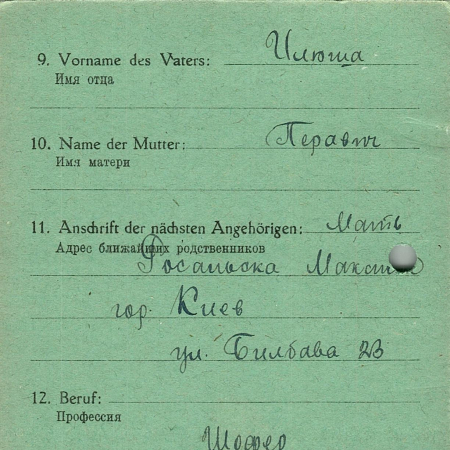 9. Vorname des Vaters: Илюша
Имя отца
10. Name der Mutter: Перавич
Имя матери
11. Anschrift der nächsten Angehörigen: Мать
Адрес ближайших родственников
гор. Киев
ул. 23
12. Beruf:
Профессия
Шофер